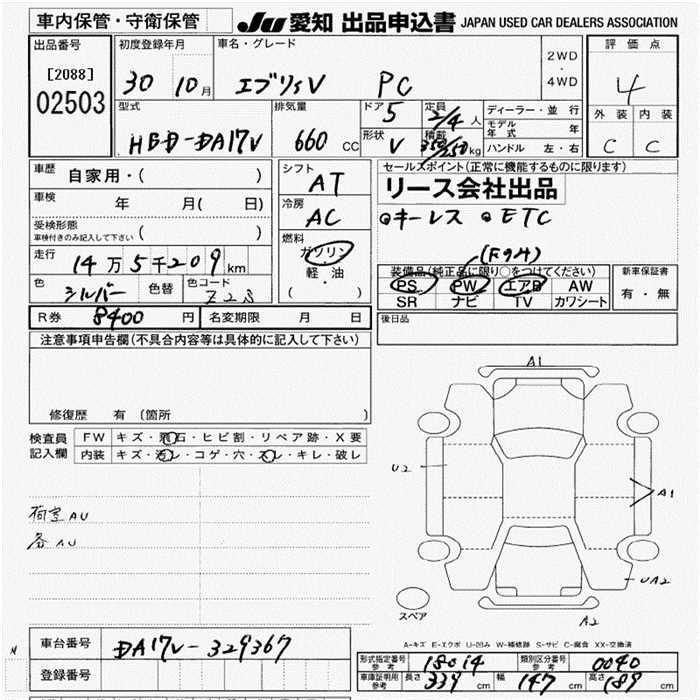 車内保管・守衛保管 JU 愛知 出品申込書 JAPAN USED CAR DEALERS ASSOCIATION
出品番号 初度登録年月 車名・グレード 2WD・4WD 評価点
[2088] 30 10月 エブリィV PC 4
02503
型式 排気量 ドア 5 定員 2/4人 ディーラー・並行 外装 内装
モデル年式 年
HBD-DA17V 660 CC 形状 V 積載 350/250kg ハンドル 左・右 C C
車歴 自家用・( ) シフト AT セールスポイント(正常に機能するものに限ります)
リース会社出品
車検 年 月( 日) 冷房 AC ●キーレス ●ETC
受検形態 ( )
車検付きのみ記入して下さい
走行 14万5千209km 燃料 ガソリン 軽・油 ( ・ )
装備品(純正品に限り○をつけてください) 新車保証書
色 シルバー 色替 色コード Z2S PS PW エアB AW 有・無
SR ナビ TV カワシート
R券 8400円 名変期限 月 日 後日品
注意事項申告欄(不具合内容等は具体的に記入して下さい)
A1
修復歴 有 (箇所
検査員 FW キズ・飛石・ヒビ割・リペア跡・X要
記入欄 内装 キズ・汚レ・コゲ・穴・スレ・キレ・破レ
U2
A1
荷室AU
各AU
UA2
スペア A2
A-キズ E-エクボ U-凹み W-補修跡 S-サビ C-腐食 XX-交換済
車台番号 DA17V-329367
形式指定番号 参考 18014 類別区分番号 参考 0040
登録番号 車庫証明用 参考 長さ 339cm 幅 147cm 高さ 189cm